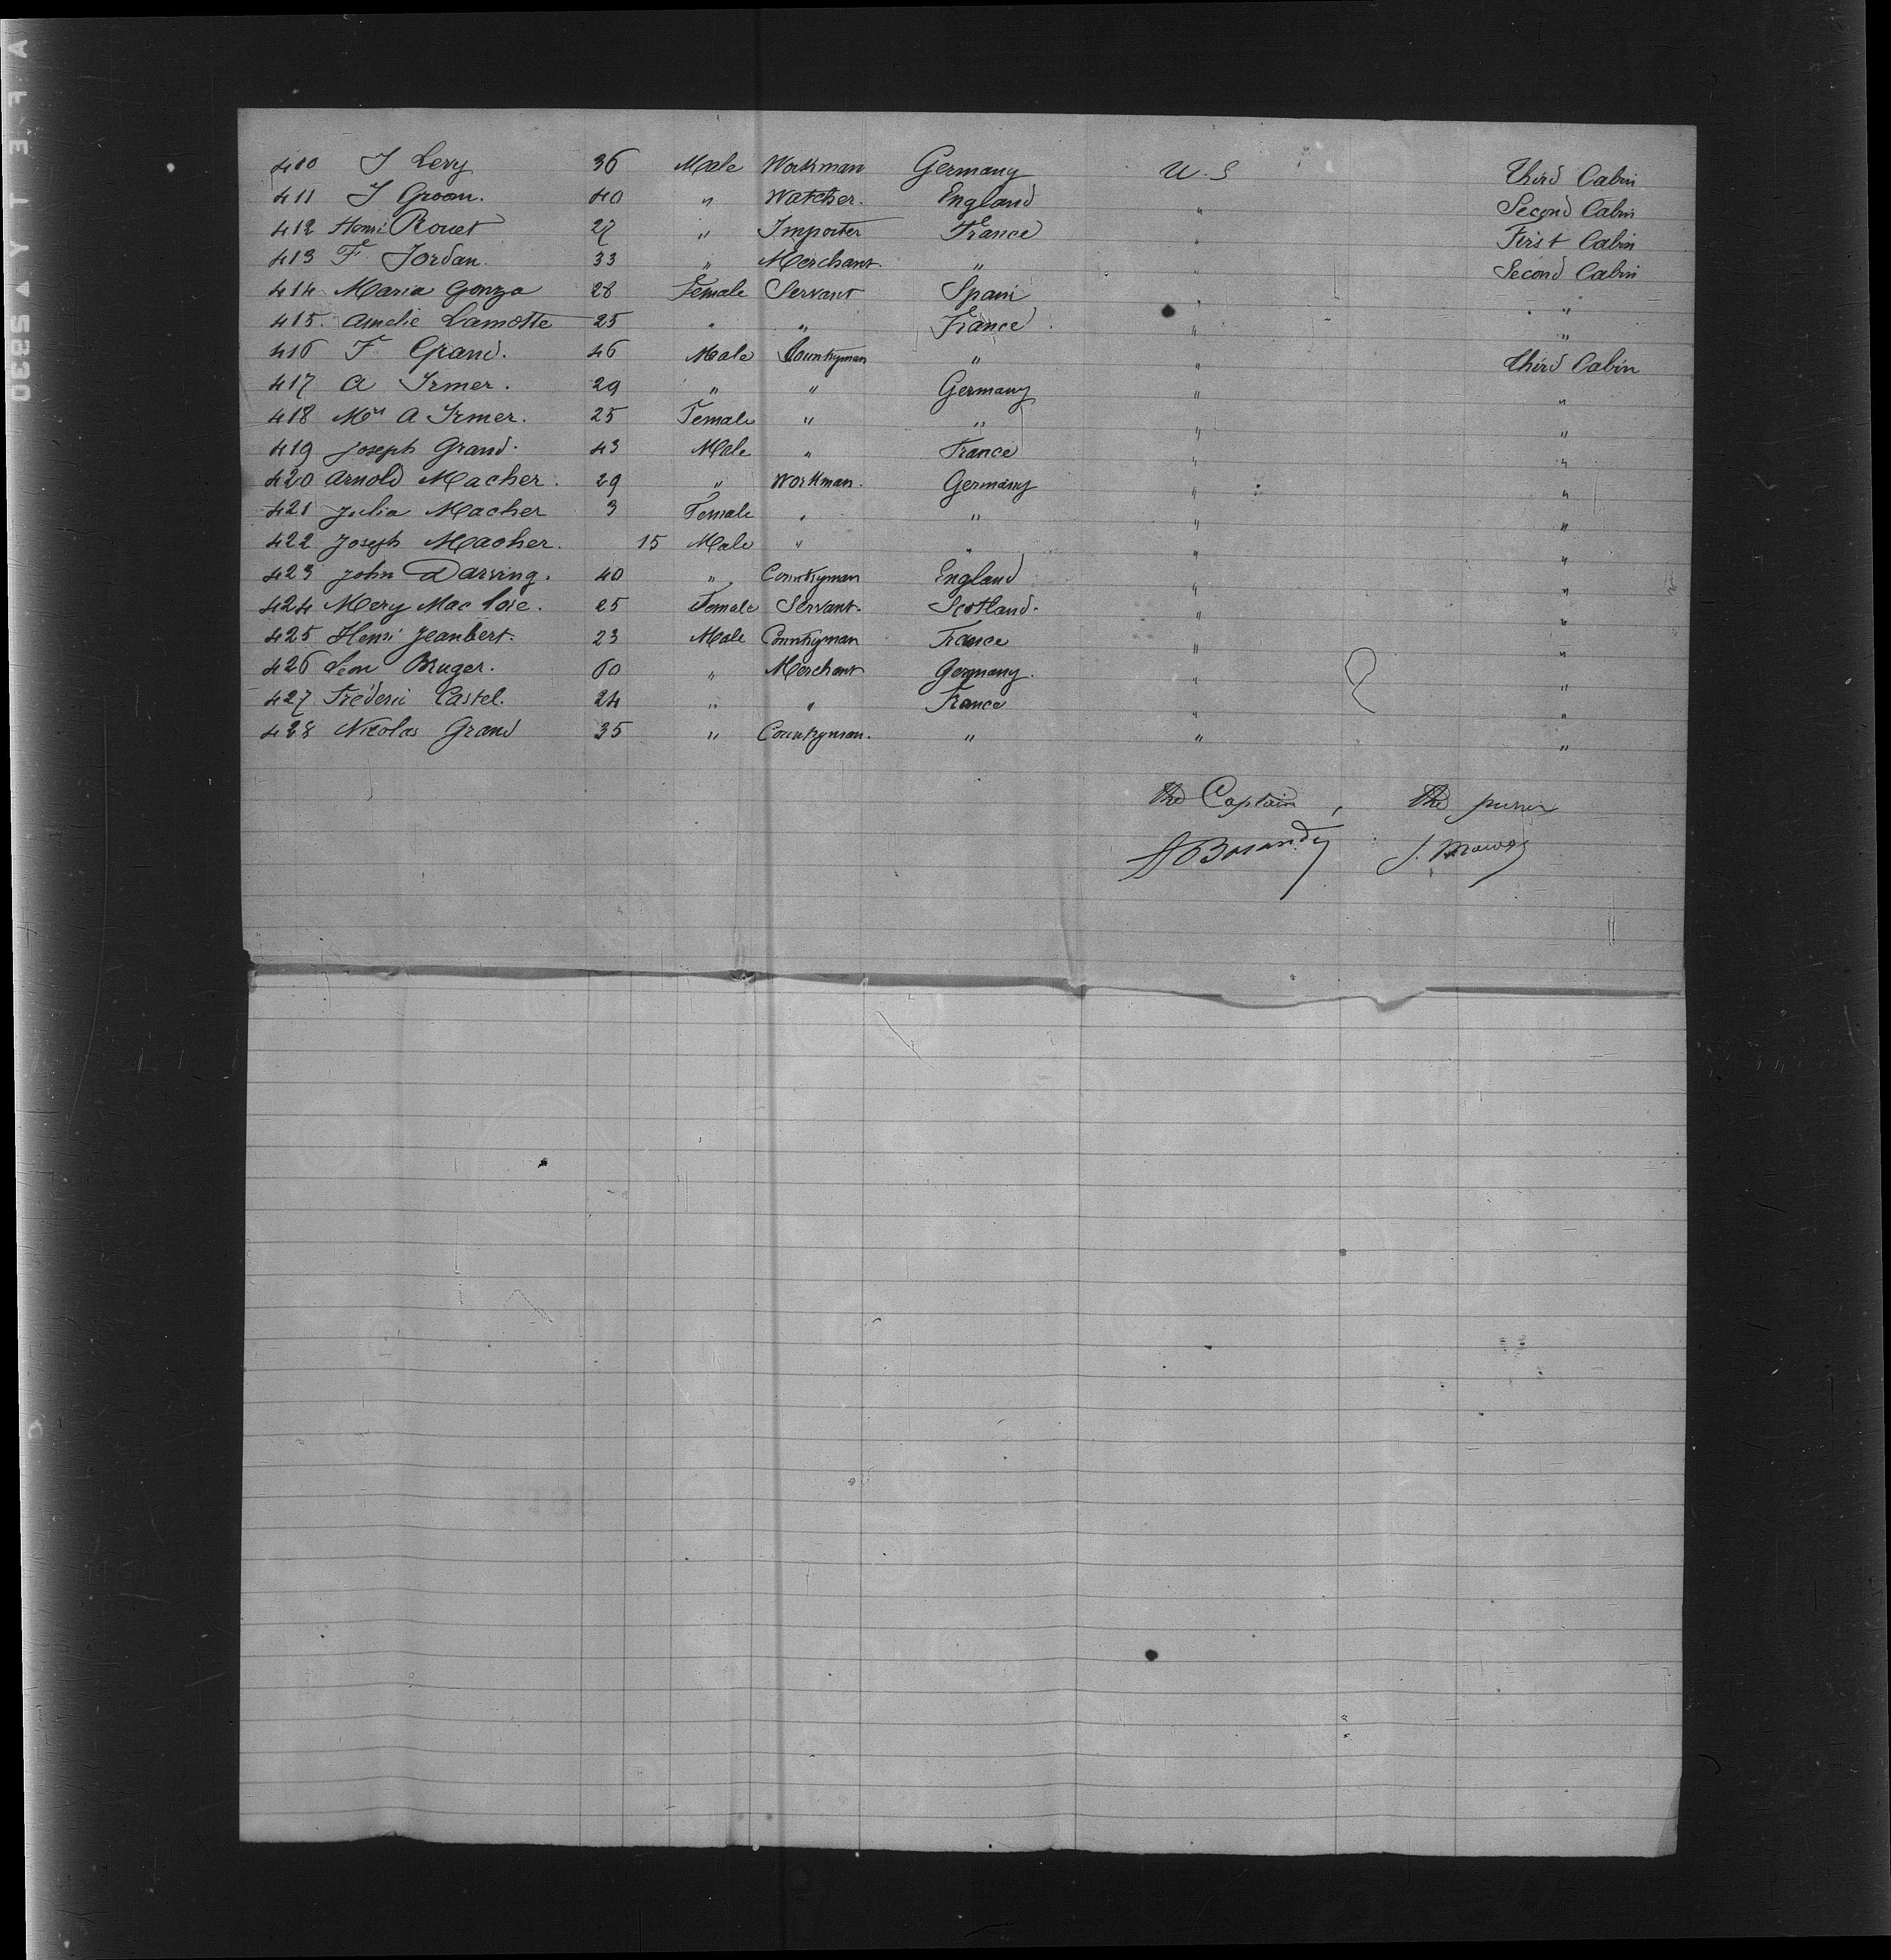 410 J Levy 36 Male Workman Germany U.S Third Cabin
411 J Groom. 40 " Watcher. England " Second Cabin
412 Henri Rouet 27 " Importer France " First Cabin
413 F Jordan. 33 " Merchant. " " Second Cabin
414 Maria Gonza 28 Female Servant Spain " "
415. Amelie Lamotte 25 " " France. " "
416 F Grand. 46 Male Countryman " " Third Cabin
417 A Irmer. 29 " " Germany " "
418 Mrs A Irmer. 25 Female " " " "
419 Joseph Grand. 43 Male " France " "
420 Arnold Macher. 29 " Workman. Germany " "
421 Julia Macher 3 Female " " " "
422 Joseph Macher. 15 Male " " " "
423 John Darving. 40 " Countryman England " "
424 Mery Mac 25 Female Servant. Scotland. " "
425 Henri Jeanbert. 23 Male Countryman France " "
426 Léon Bruger. 60 " Merchant Germany. " "
427 Fréderic Castel. 24 " " France " "
428 Nicolas Grand 35 " Countryman. " " "
the Captain, the purser